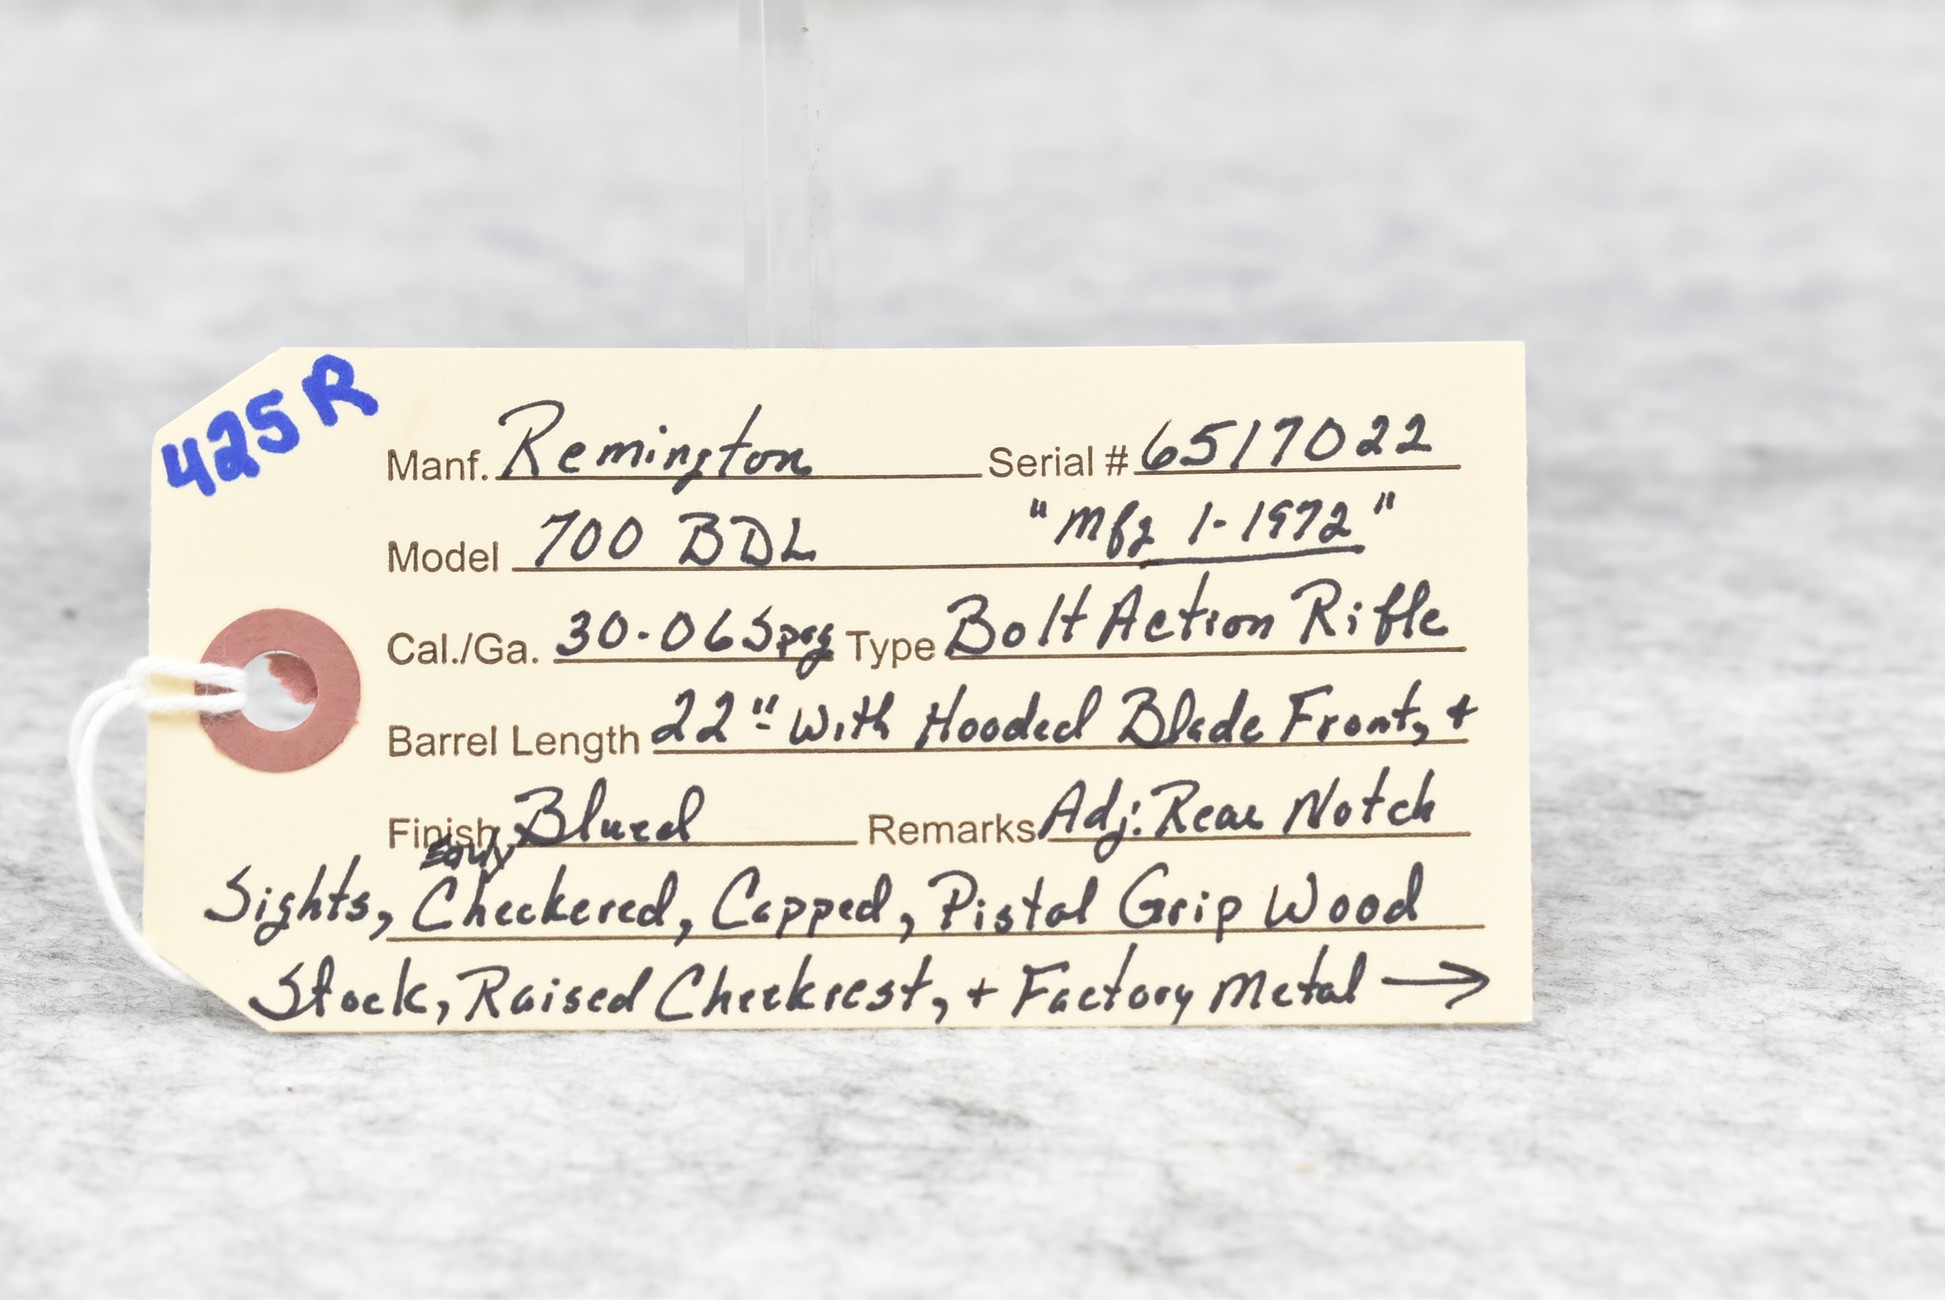 425R
Manf. Remington Serial # 6517022
Model 700 BDL "Mfg 1-1972"
Cal./Ga. 30-06 Sprg Type Bolt Action Rifle
Barrel Length 22" with Hooded Blade Front, +
Finish Blued Remarks Adj. Rear Notch
Sights, Checkered, Capped, Pistol Grip Wood
Stock, Raised Cheekrest, + Factory Metal →